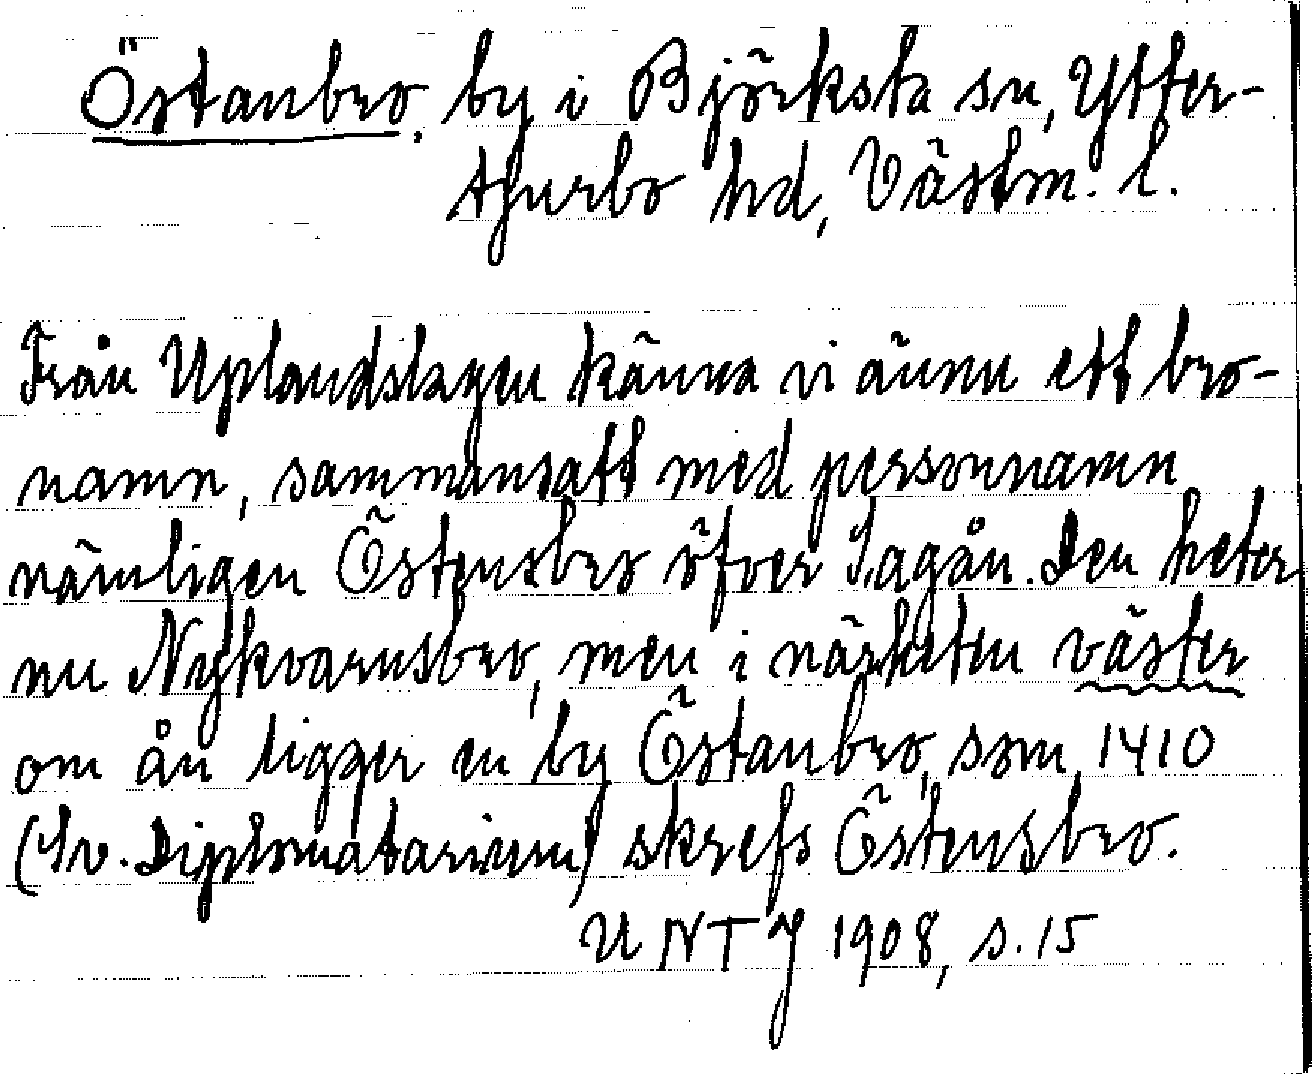 Östanbro, by i Björksta sn, Ytter-
tjurbo hd, Västm. l.
Från Uplandslagen känna vi ännu ett bro-
namn, sammansatt med personnamn
nämligen Östensbro öfver Sagån. Den heter
nu Nykvarnsbro, men i närheten väster
om ån ligger en by Östanbro, som 1410
(Sv. Diplomatarium) skrefs Östensbro.
UNTJ 1908, s. 15